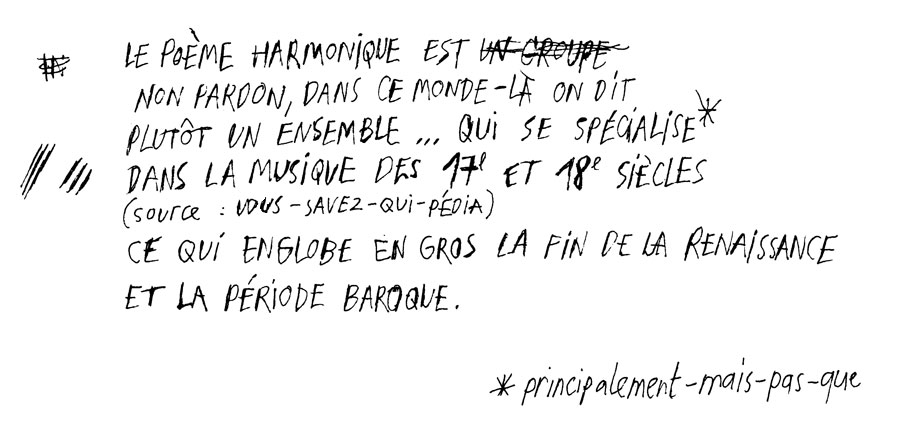 LE POÈME HARMONIQUE EST UN GROUPE
NON PARDON, DANS CE MONDE-LÀ ON DIT
PLUTÔT UN ENSEMBLE ... QUI SE SPÉCIALISE*
DANS LA MUSIQUE DES 17e ET 18e SIÈCLES
(source : VOUS-SAVEZ-QUI-PÉDIA)
CE QUI ENGLOBE EN GROS LA FIN DE LA RENAISSANCE
ET LA PÉRIODE BAROQUE.
* principalement-mais-pas-que